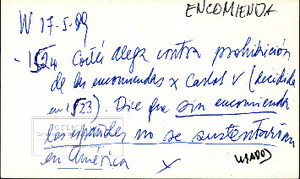 ENCOMIENDA
W 17-I-89
- 1524 Cortés alega contra prohibición
de las encomiendas x Carlos V (decidida
en 1523). Dice que sin encomienda
los españoles no se sustentarían
en América
USADO